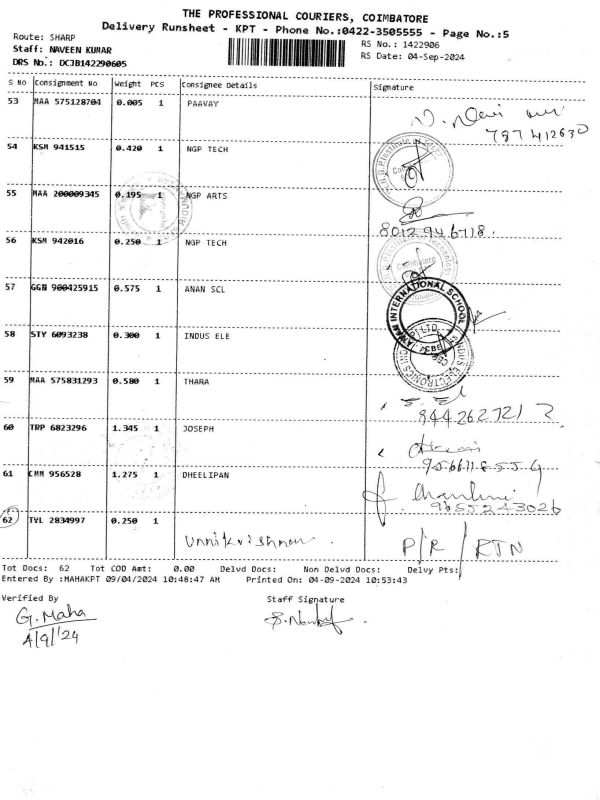 THE PROFESSIONAL COURIERS, COIMBATORE
Delivery Runsheet - KPT - Phone No.:0422-3505555 - Page No.:5
Route: SHARP
Staff: NAVEEN KUMAR
DRS No.: DCJB142290605
RS No.: 1422906
RS Date: 04-Sep-2024
S No Consignment No Weight PCS Consignee Details Signature
53 MAA 575128704 0.005 1 PAAVAY
54 KSM 941515 0.420 1 NGP TECH
55 MAA 200009345 0.195 1 NGP ARTS
8012946718.
56 KSM 942016 0.250 1 NGP TECH
57 GGN 900425915 0.575 1 ANAN SCL
INTERNATIONAL SCHOOL
58 STY 6093238 0.300 1 INDUS ELE
INDUS ELECTRONICS
59 MAA 575831293 0.580 1 THARA
844262721 2
60 TRP 6823296 1.345 1 JOSEPH
61 CMM 956528 1.275 1 DHEELIPAN
9655243026
62 TVL 2834997 0.250 1 Unnikrishnan P/R/RTN
Tot Docs: 62 Tot COD Amt: 0.00 Delvd Docs: Non Delvd Docs: Delvy Pts:
Entered By :MAHAKPT 09/04/2024 10:48:47 AM Printed On: 04-09-2024 10:53:43
Verified By Staff Signature
G. Maha
4/9/'24